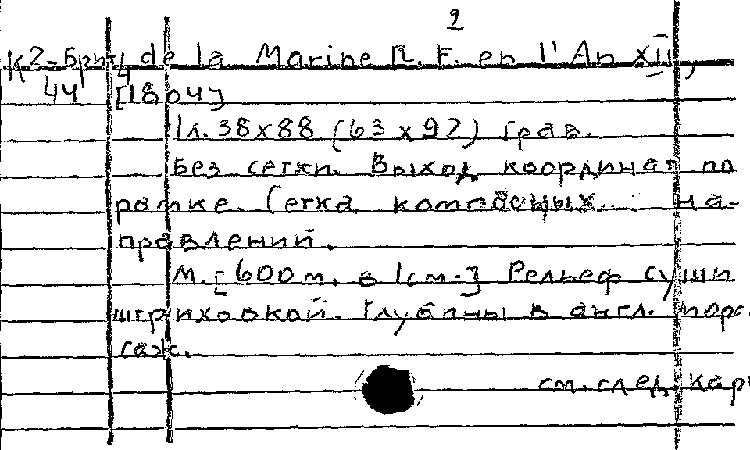 2
К2-Брит de la Marine R. F. en l'An XII,
4
44 [1804]
1л. 38x88 (63x92) Грав.
Без сетки. Выход координат по
рамке. Сетка компасных на-
правлений.
М. [600м. в 1см.] Рельеф суши
штриховкой. Глубины в англ. морс.
саж.
см. след. кар